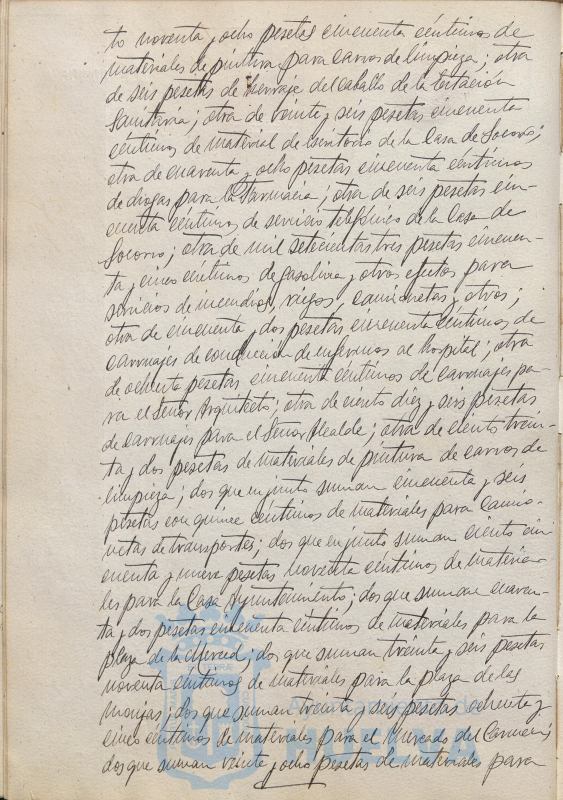 to noventa y ocho pesetas cincuenta céntimos de
materiales de pintura para carros de limpieza; otra
de seis pesetas de herraje del caballo de la Estación
Sanitaria; otra de veinte y seis pesetas cincuenta
céntimos de material de escritorio de la Casa de Socorro;
otra de cuarenta y ocho pesetas cincuenta céntimos
de drogas para la Farmacia; otra de seis pesetas cin-
cuenta céntimos de servicio telefónico de la Casa de
Socorro; otra de mil setecientas tres pesetas cincuen-
ta y cinco céntimos de gasolina y otros efectos para
servicios de incendios, riegos, camionetas y otros;
otra de cincuenta y dos pesetas cincuenta céntimos de
carruajes de conducción de enfermos al hospital; otra
de ochenta pesetas cincuenta céntimos de carruajes pa-
ra el Señor Arquitecto; otra de ciento diez y seis pesetas
de carruajes para el Señor Alcalde; otra de ciento trein-
ta y dos pesetas de materiales de pintura de carros de
limpieza; dos que en junto suman cincuenta y seis
pesetas con quince céntimos de materiales para camio-
netas de transportes; dos que en junto suman ciento cin
cuenta y nueve pesetas noventa céntimos de materia-
les para la Casa Ayuntamiento; dos que suman cuaren-
ta y dos pesetas cincuenta céntimos de materiales para la
plaza de la Merced; dos que suman treinta y seis pesetas
noventa céntimos de materiales para la plaza de las
monjas; dos que suman treinta y seis pesetas ochenta y
cinco céntimos de materiales para el Mercado del Carmen;
dos que suman veinte y ocho pesetas de materiales para
Ayuntamiento de
HUELVA